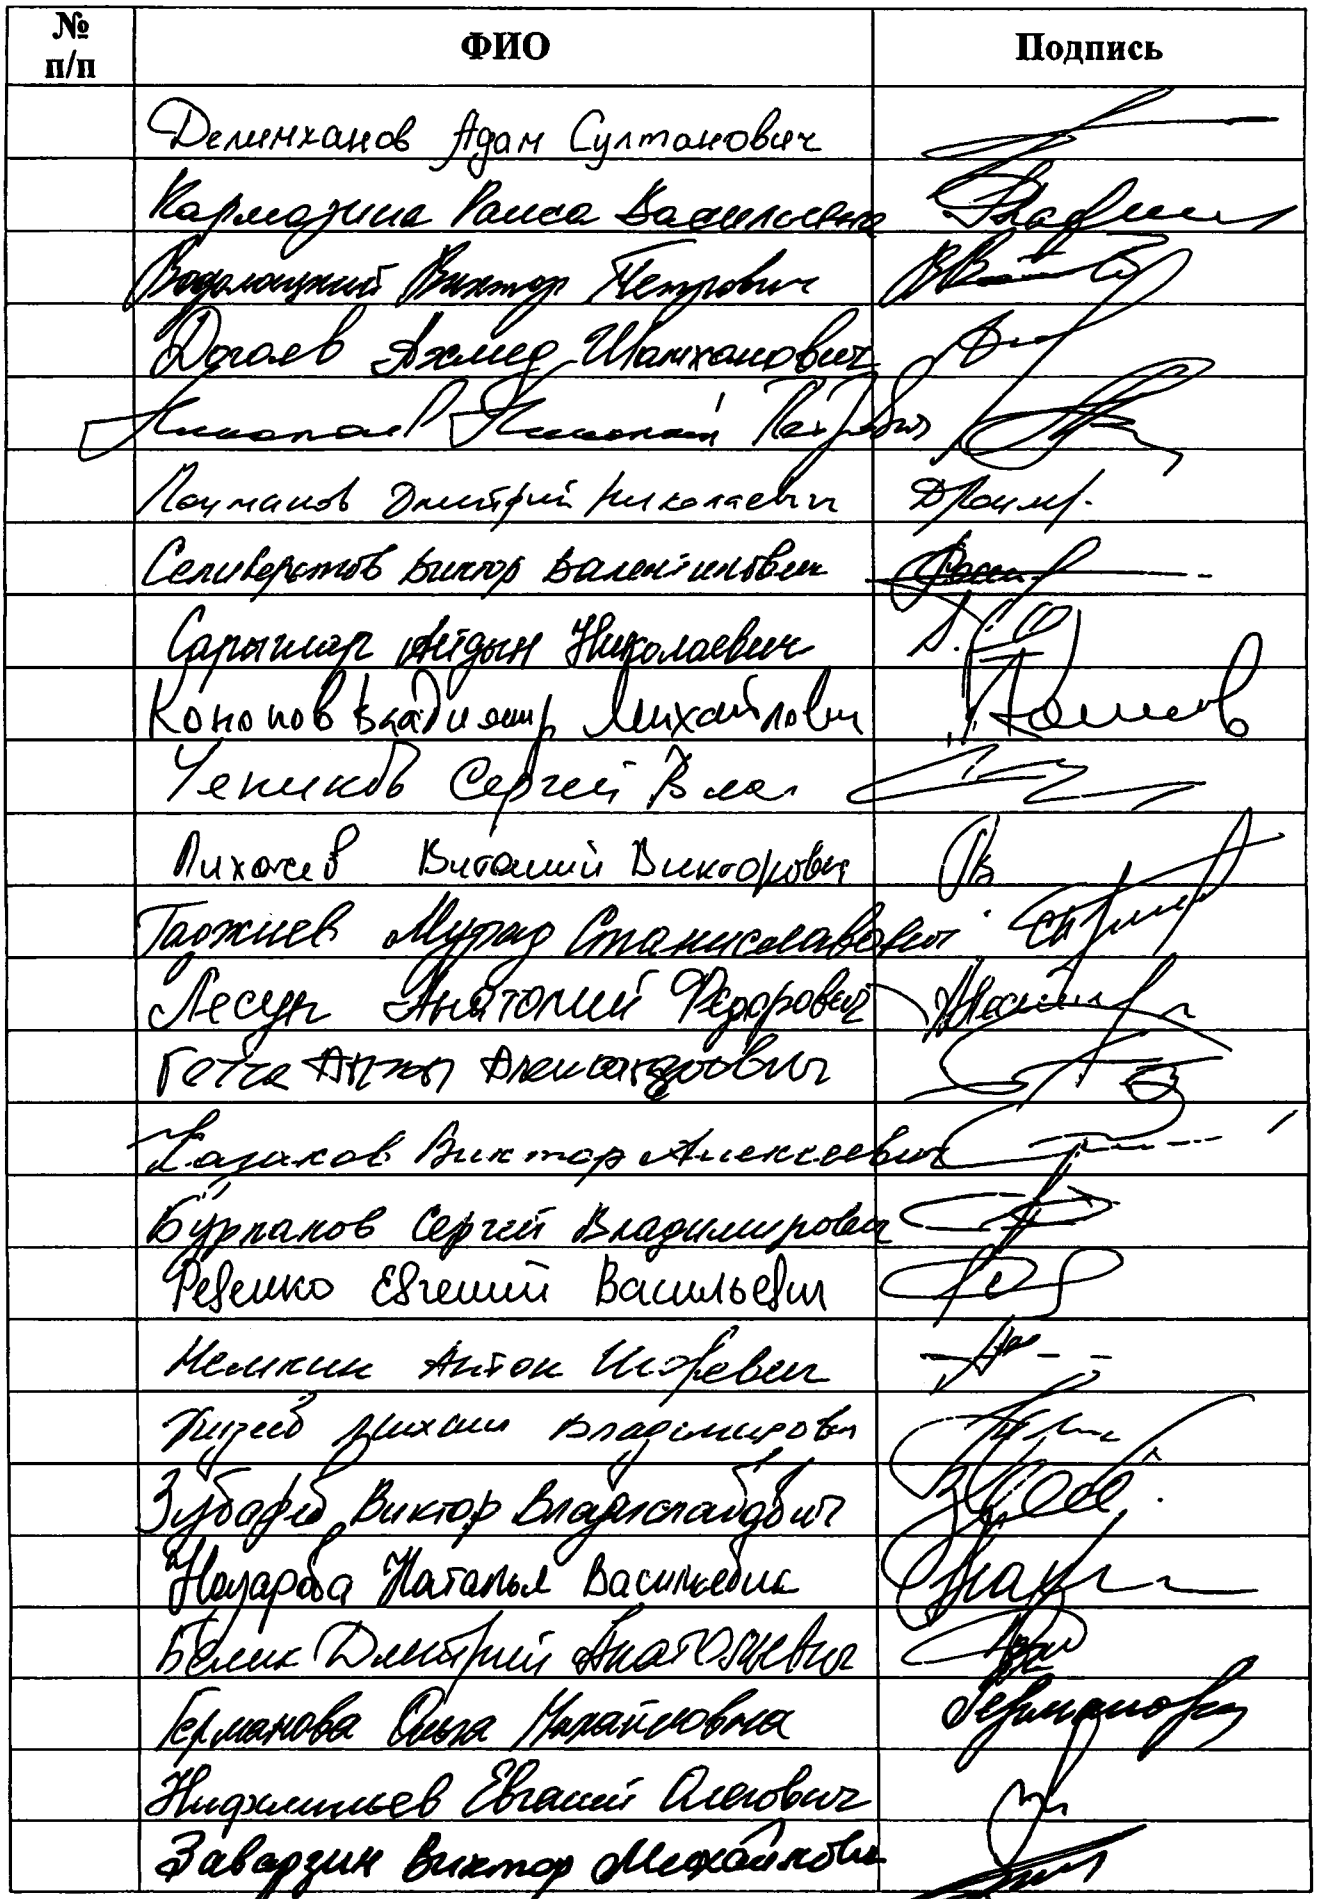 № п/п ФИО Подпись
Делимханов Адам Султанович
Кармазина Раиса Васильевна
Водолацкий Виктор Петрович
Догаев Ахмед Шамханович
Николаев Николай Петрович
Лоцманов Дмитрий Николаевич
Селиверстов Виктор Валентинович
Сарыглар Айдын Николаевич
Кононов Владимир Михайлович
Чепиков Сергей Влад
Лихачев Виталий Викторович
Гаджиев Мурад Станиславович
Лесун Анатолий Фёдорович
Гетта Антон Александрович
Казаков Виктор Алексеевич
Бурлаков Сергей Владимирович
Ревенко Евгений Васильевич
Немкин Антон Игоревич
Кизеев Михаил Владимирович
Зубарев Виктор Владиславович
Назарова Наталья Васильевна
Белик Дмитрий Анатольевич
Германова Ольга Михайловна Германова
Нифантьев Евгений Олегович
Заварзин Виктор Михайлович